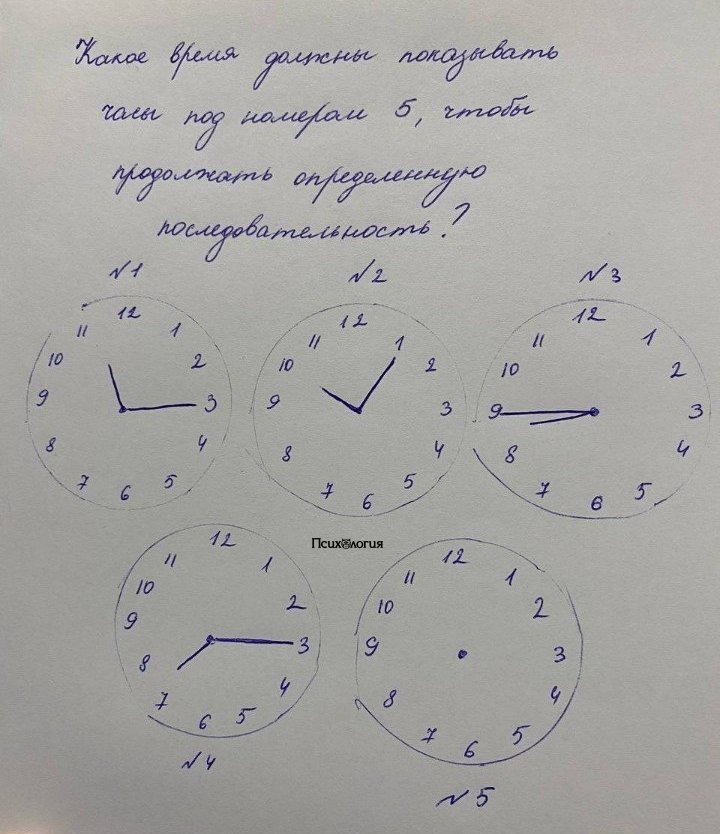 Какое время должны показывать
часы под номером 5, чтобы
продолжать определенную
последовательность?
№1
№2
№3
12
1
2
3
4
5
6
7
8
9
10
11
12
1
2
3
4
5
6
7
8
9
10
11
12
1
2
3
4
5
6
7
8
9
10
11
Психология
12
1
2
3
4
5
6
7
8
9
10
11
12
1
2
3
4
5
6
7
8
9
10
11
№4
№5